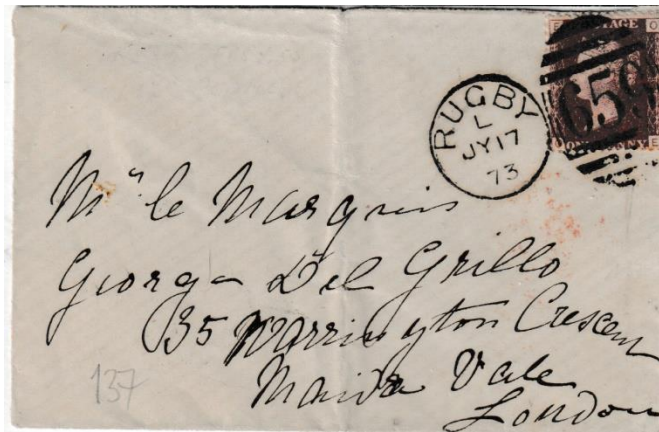 RUGBY
L
JY 17
73
659
E O
O E
Mr le Marquis
George Del Grillo
35 Warrington Crescent
Maida Vale
London
137